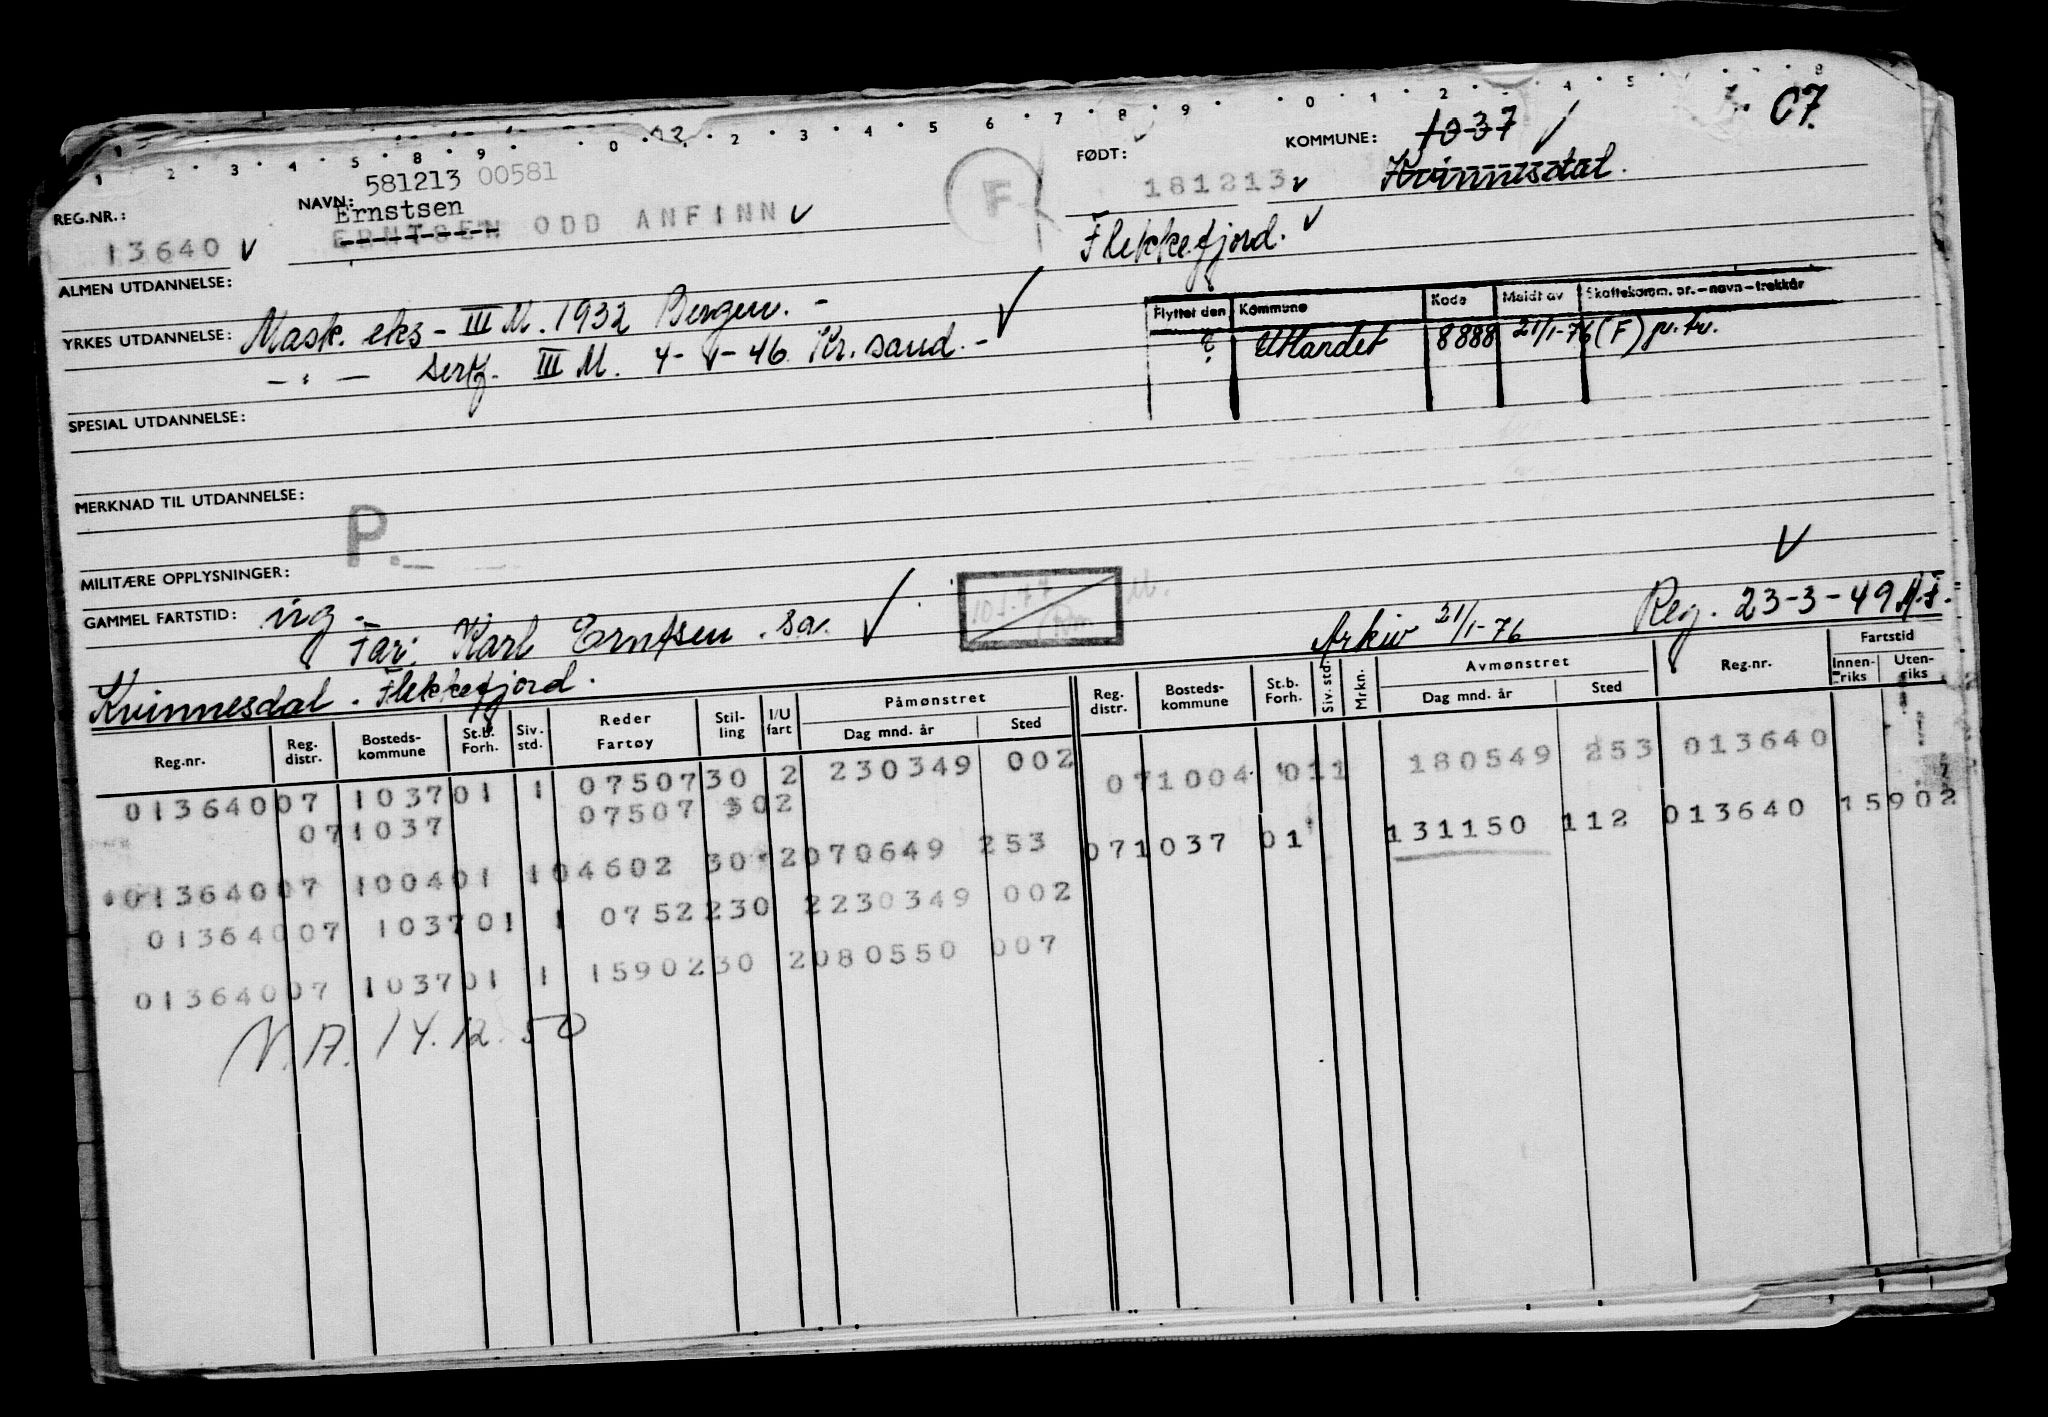 1 2 3 4 5 8 9 0 2 3 4 5 6 7 8 9 0 1 2 4 5 8
C7.
REG.NR.: 13640 v
NAVN: 581213 00581
Ernstsen
ERNTSEN ODD ANFINN v
F
FØDT: 181213 v
Flekkefjord. v
KOMMUNE: 1037
Kvinnesdal.
ALMEN UTDANNELSE:
YRKES UTDANNELSE: Mask. eks - III M. 1932 Bergen. -
- " - sertf. III M. 4-1-46. Kr.sand. -
Flyttet den Kommune Kode Meldt av Skattekomm. nr. - navn - trekkår
? Utlandet 8888 21/1-76 (F) pr. tr.
SPESIAL UTDANNELSE:
MERKNAD TIL UTDANNELSE:
P.
MILITÆRE OPPLYSNINGER:
GAMMEL FARTSTID: ing -
Far: Karl Erntsen. sa.
Arkiv 21/1-76
Reg. 23-3-49
Kvinnesdal. Flekkefjord.
Reg.nr. Reg. distr. Bosteds- kommune St.b. Forh. Siv. std. Reder Fartøy Stil- ling I/U fart Påmønstret Dag mnd. år Sted Reg. distr. Bosteds- kommune St.b. Forh. Siv. std. Mrkn. Avmønstret Dag mnd. år Sted Reg.nr. Fartstid Innen- riks Uten- riks
013640 07 1037 01 1 07507 30 2 230349 002 07 1004 01 1 180549 253 013640
07 1037 07507 302
013640 07 1004 01 1 04602 30 2 070649 253 07 1037 01 131150 112 013640 15902
013640 07 1037 01 1 07522 30 2 230349 002
013640 07 1037 01 1 15902 30 2 080550 007
N.A. 14.12.50